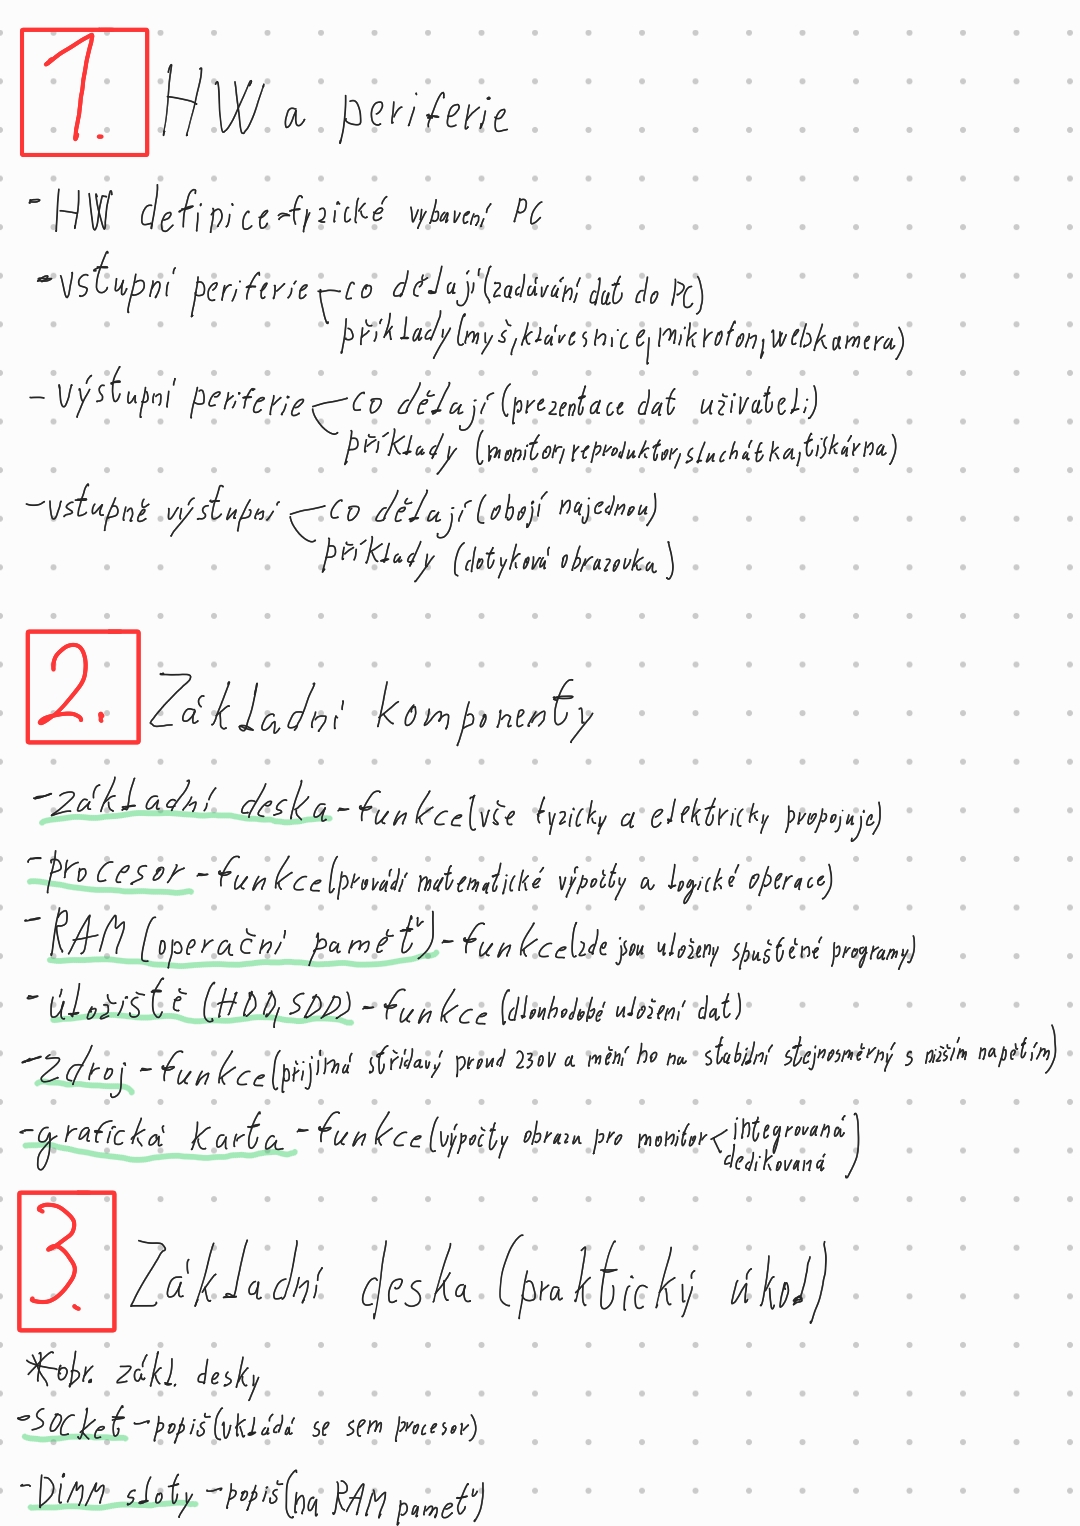 1. HW a periferie
- HW definice = fyzické vybavení PC
- vstupní periferie co dělají (zadávání dat do PC)
příklady (myš, klávesnice, mikrofon, webkamera)
- výstupní periferie co dělají (prezentace dat uživateli)
příklady (monitor, reproduktor, sluchátka, tiskárna)
- vstupně výstupní co dělají (obojí najednou)
příklady (dotyková obrazovka)
2. Základní komponenty
- základní deska - funkce (vše fyzicky a elektricky propojuje)
- procesor - funkce (provádí matematické výpočty a logické operace)
- RAM (operační paměť) - funkce (zde jsou uloženy spuštěné programy)
- úložiště (HDD, SDD) - funkce (dlouhodobé uložení dat)
- zdroj - funkce (přijímá střídavý proud 230V a mění ho na stabilní stejnosměrný s nižším napětím)
- grafická karta - funkce (výpočty obrazu pro monitor integrovaná
dedikovaná)
3. Základní deska (praktický úkol)
* obr. zákl. desky
- socket - popiš (vkládá se sem procesor)
- Dimm sloty - popiš (na RAM paměť)